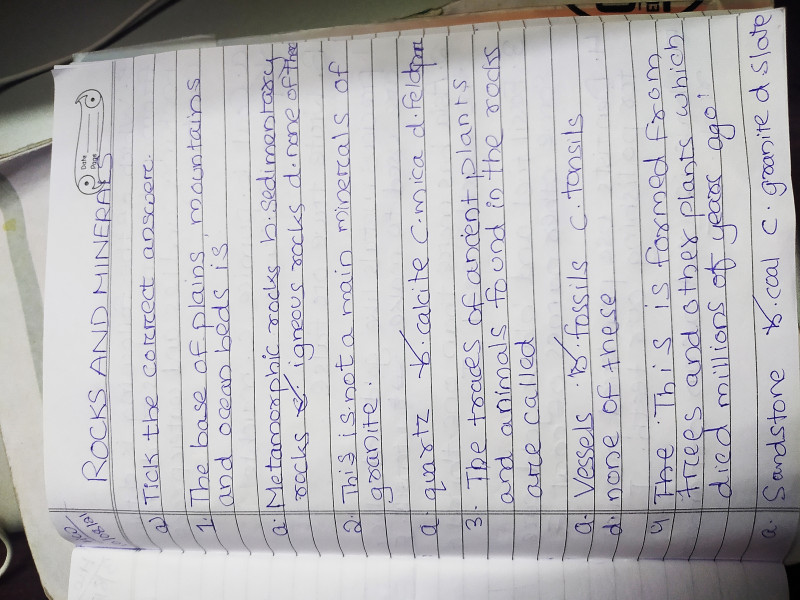 Date
Page
ROCKS AND MINERALS
a) Tick the correct answer.
1. The base of plains, mountains
and ocean beds is
a. Metamorphic rocks b. sedimentary
rocks c. igneous rocks d. none of the
2. This is not a main minerals of
granite.
a. quartz b. calcite c. mica d. feldspar
3. The traces of ancient plants
and animals found in the rocks
are called
a. Vessels b. fossils c. tonsils
d. none of these
4. The This is formed from
trees and other plants which
died millions of years ago!
a. Sandstone b. coal c. granite d slate